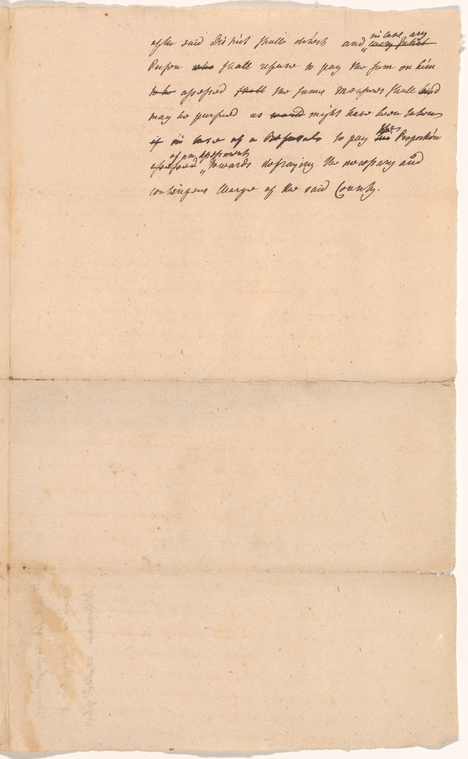 of the said District shall direct and in case any every ⁠
Person who shall refuse to pay the Sum on him
to be assessed shall the same Measures shall and
may be pursued as would might have been taken
if in case of a Refusal to pay his Proportion
of any assessment Towards defraying the necessary and
contingent Charge of the said County.